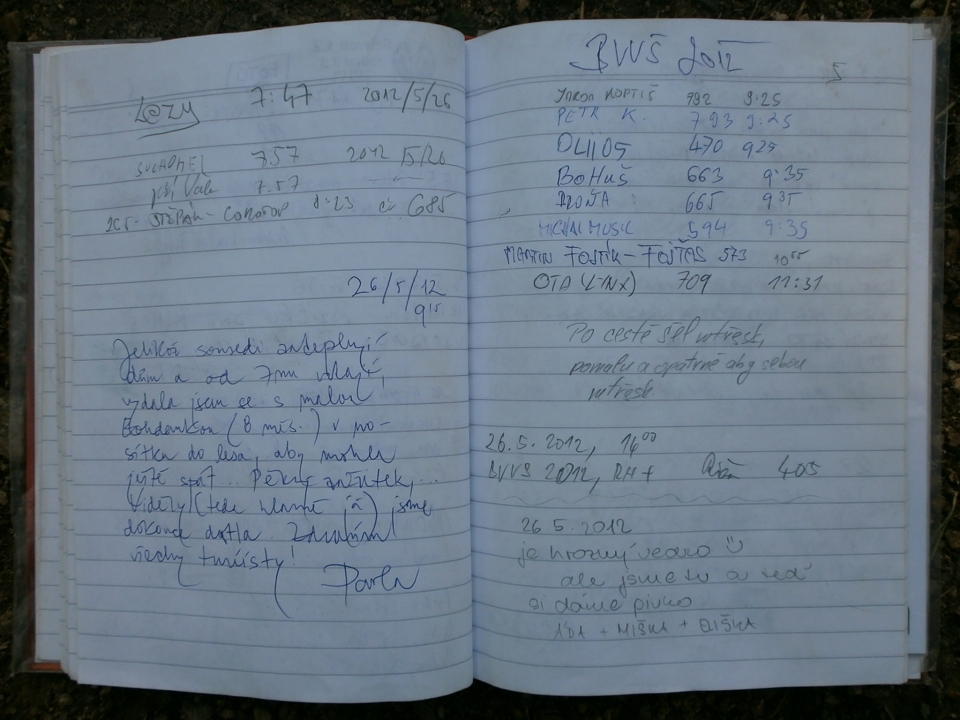 Lazy 7:47 2012/5/26
SUCHOMEL 7.57 2012 5/26
Jiří 7.57
ŠTĚPÁN - 8:23 č. 685
26/5/12
9 15
Jelikož sousedi zateplují
dům a od 7mi vrtají,
vydala jsem se s malou
Bohdankou (8 měs.) v no-
sítku do lesa, aby mohla
ještě spát.. Pěkný zážitek,..
Viděly (tedy vlastně já) jsme
dokonce datla. Zdravím
všechny turisty!
Pavla
BVVŠ 2012
5
KOPTIŠ 992 9:25
PETR K. 793 9:25
OLI105 470 925
BOHUŠ 663 9:35
665 9 35
MICHAL MUSIL 594 9:35
MARTIN FOJTÍK - FOJŤAS 573 10 55
OTA (LYNX) 709 11:31
Po cestě šel vntřesk,
pomalu a opatrně aby sebou
26.5. 2012, 14 00
BVVŠ 2012, RH+ 405
26 5. 2012
je hrozný vedro
ale jsme tu a teď
si dáme pivko
ÁĎA + MIŠKA + ELIŠKA